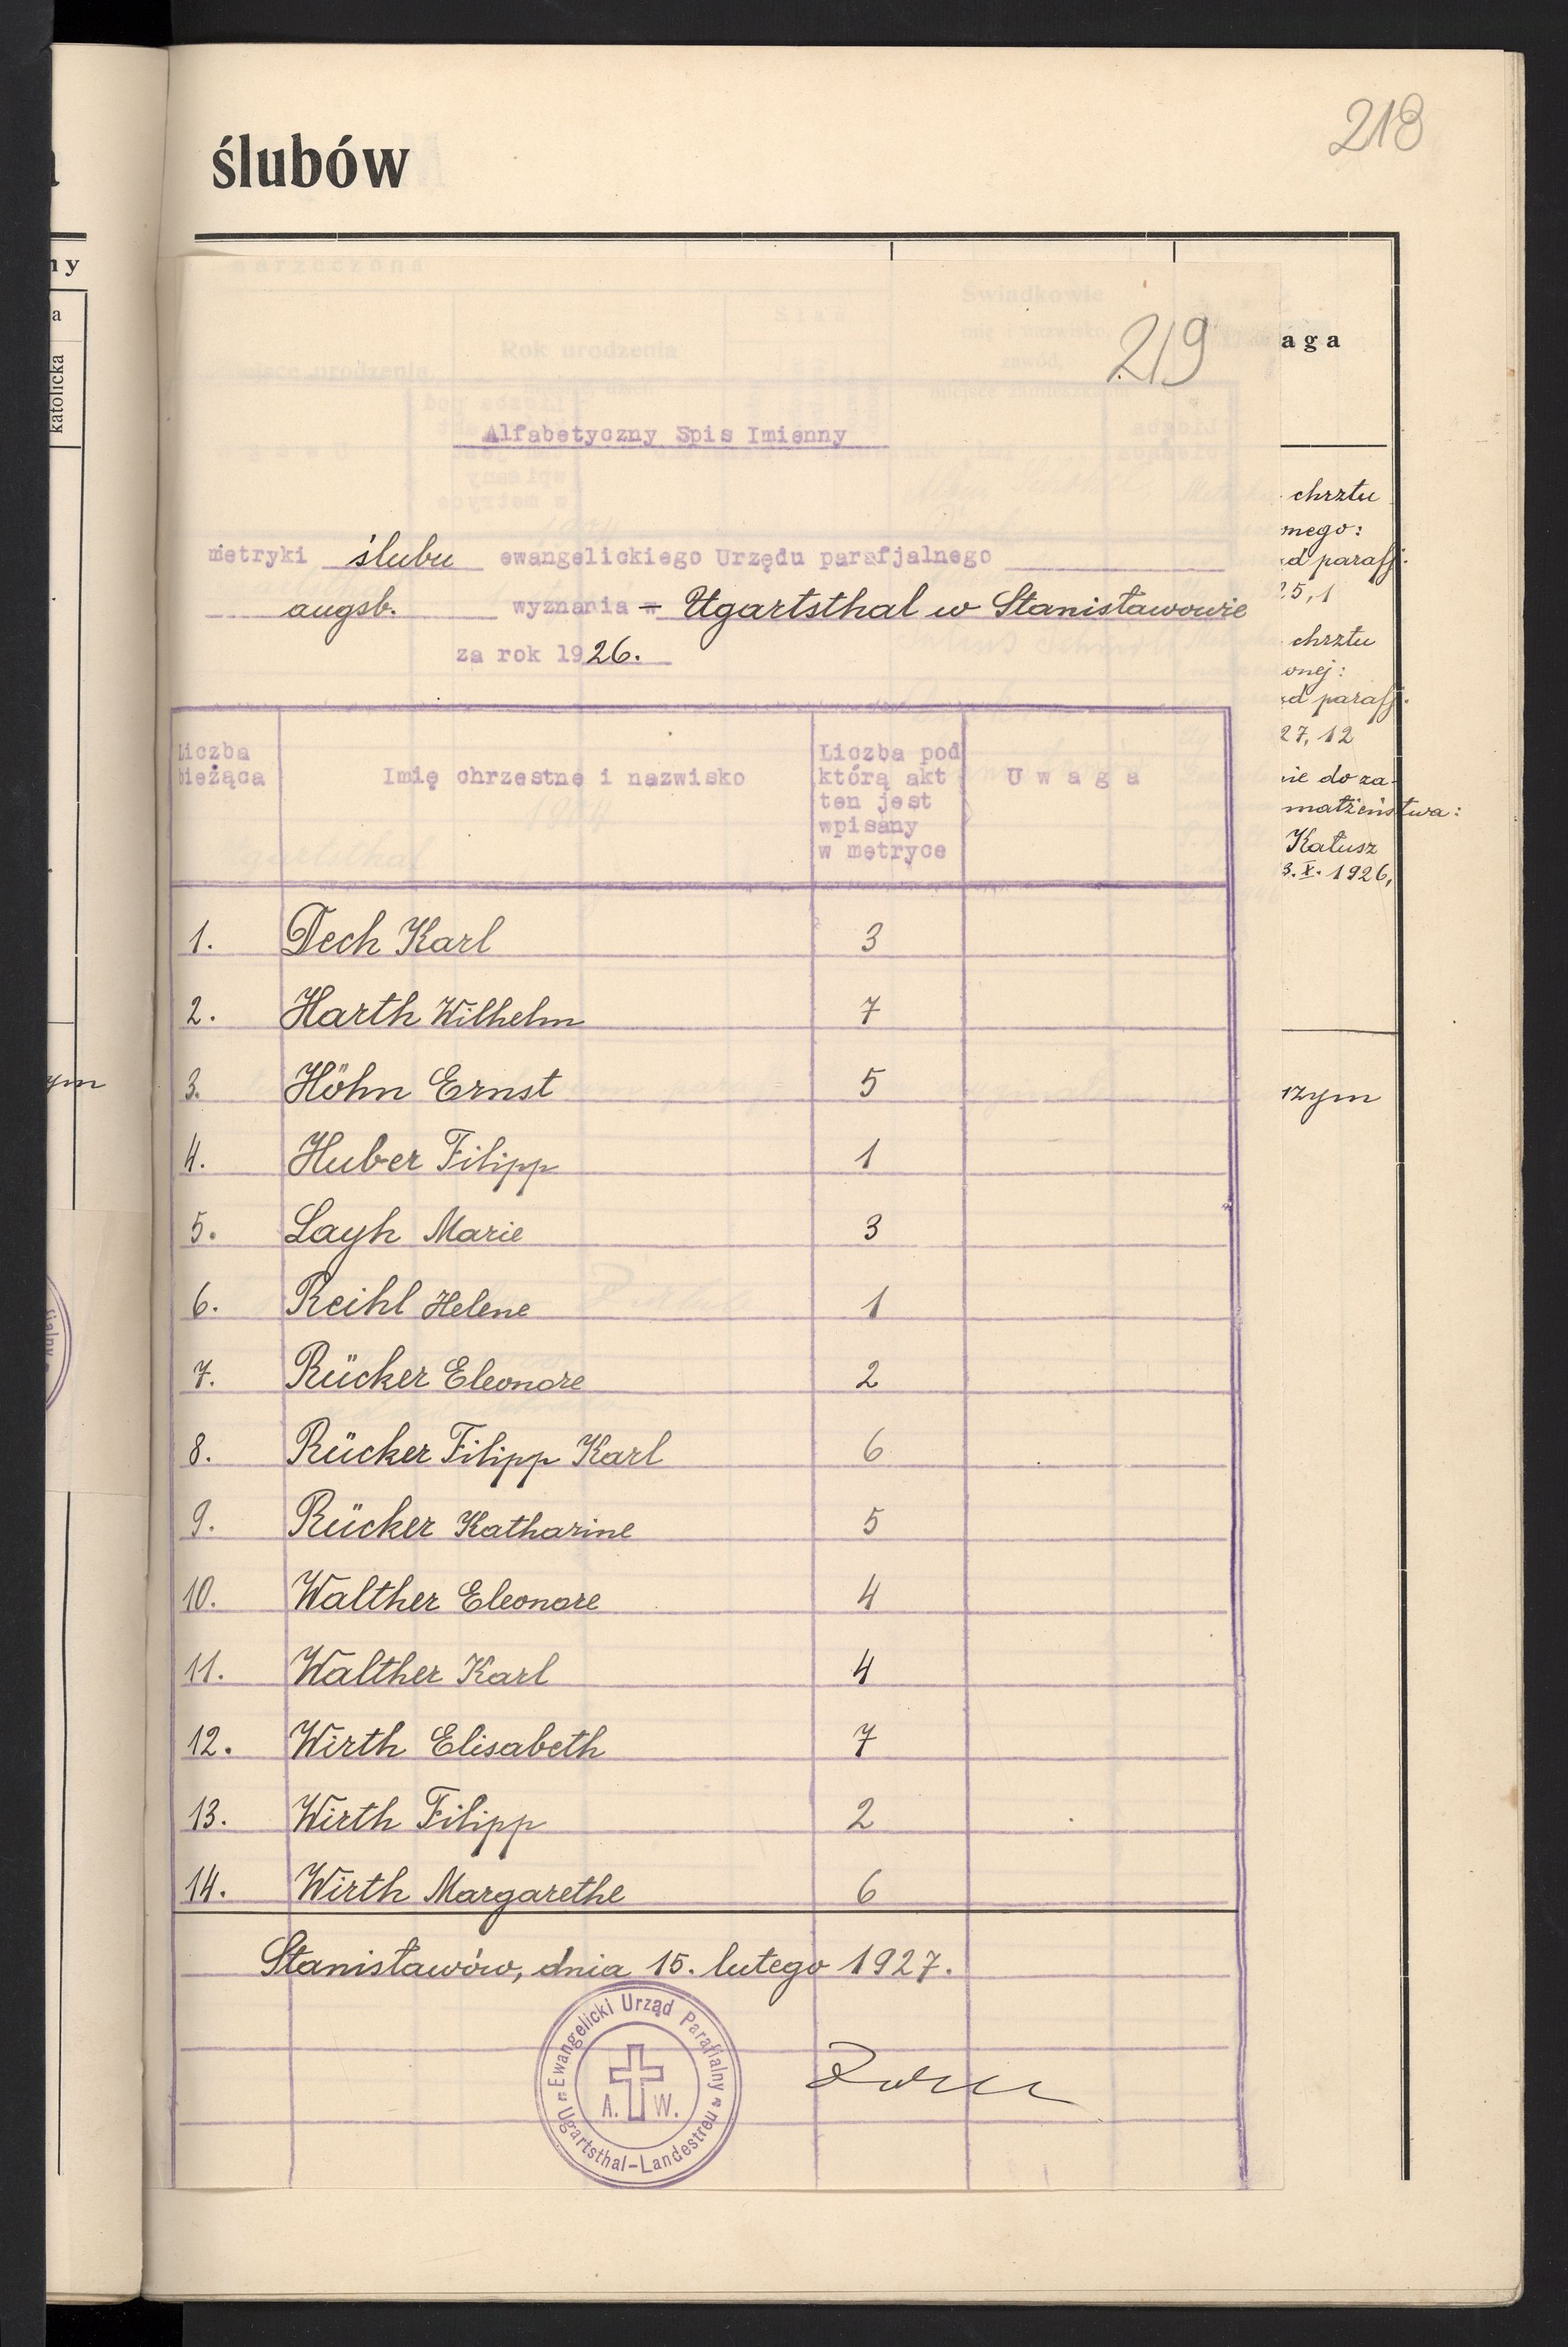 218
ślubów
ny
a
katolicka
219
aga
Alfabetyczny Spis Imienny
chrztu
mego:
metryki ślubu ewangelickiego Urzędu parafjalnego
d parafj.
augsb. wyznania w Ugartsthal w Stanisławowie
25,1
za rok 1926.
chrztu
onej:
d parafj.
27,12
Liczba bieżąca
Imię chrzestne i nazwisko
Liczba pod którą akt ten jest wpisany w metryce
Uwaga
nie do za-
małżeństwa:
Kałusz
3. X. 1926,
1. Dech Karl 3
2. Harth Wilhelm 7
3. Höhn Ernst 5
zym
4. Huber Filipp 1
5. Layh Marie 3
6. Reihl Helene 1
7. Rücker Eleonore 2
8. Rücker Filipp Karl 6
9. Rücker Katharine 5
10. Walther Eleonore 4
11. Walther Karl 4
12. Wirth Elisabeth 7
13. Wirth Filipp 2
14. Wirth Margarethe 6
Stanisławów, dnia 15. lutego 1927.
Ewangelicki Urząd Parafialny
A. W.
Ugartsthal-Landestreu